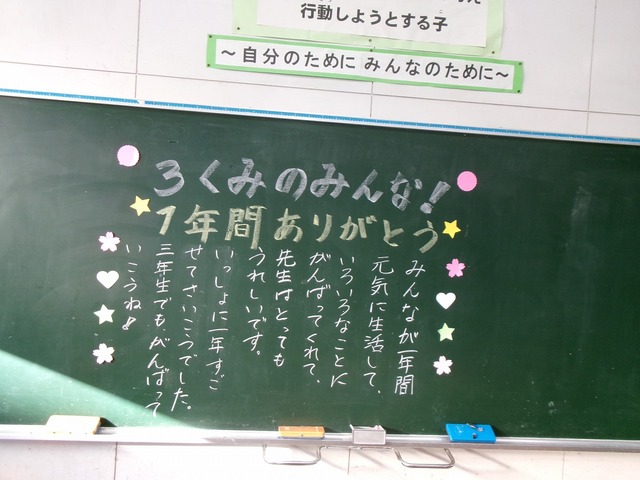 行動しようとする子
～自分のために みんなのために～
3くみのみんな!
1年間ありがとう
みんなが一年間
元気に生活して、
いろいろなことに
がんばってくれて、
先生はとっても
うれしいです。
いっしょに一年すご
せてさいこうでした。
三年生でもがんばって
いこうね!